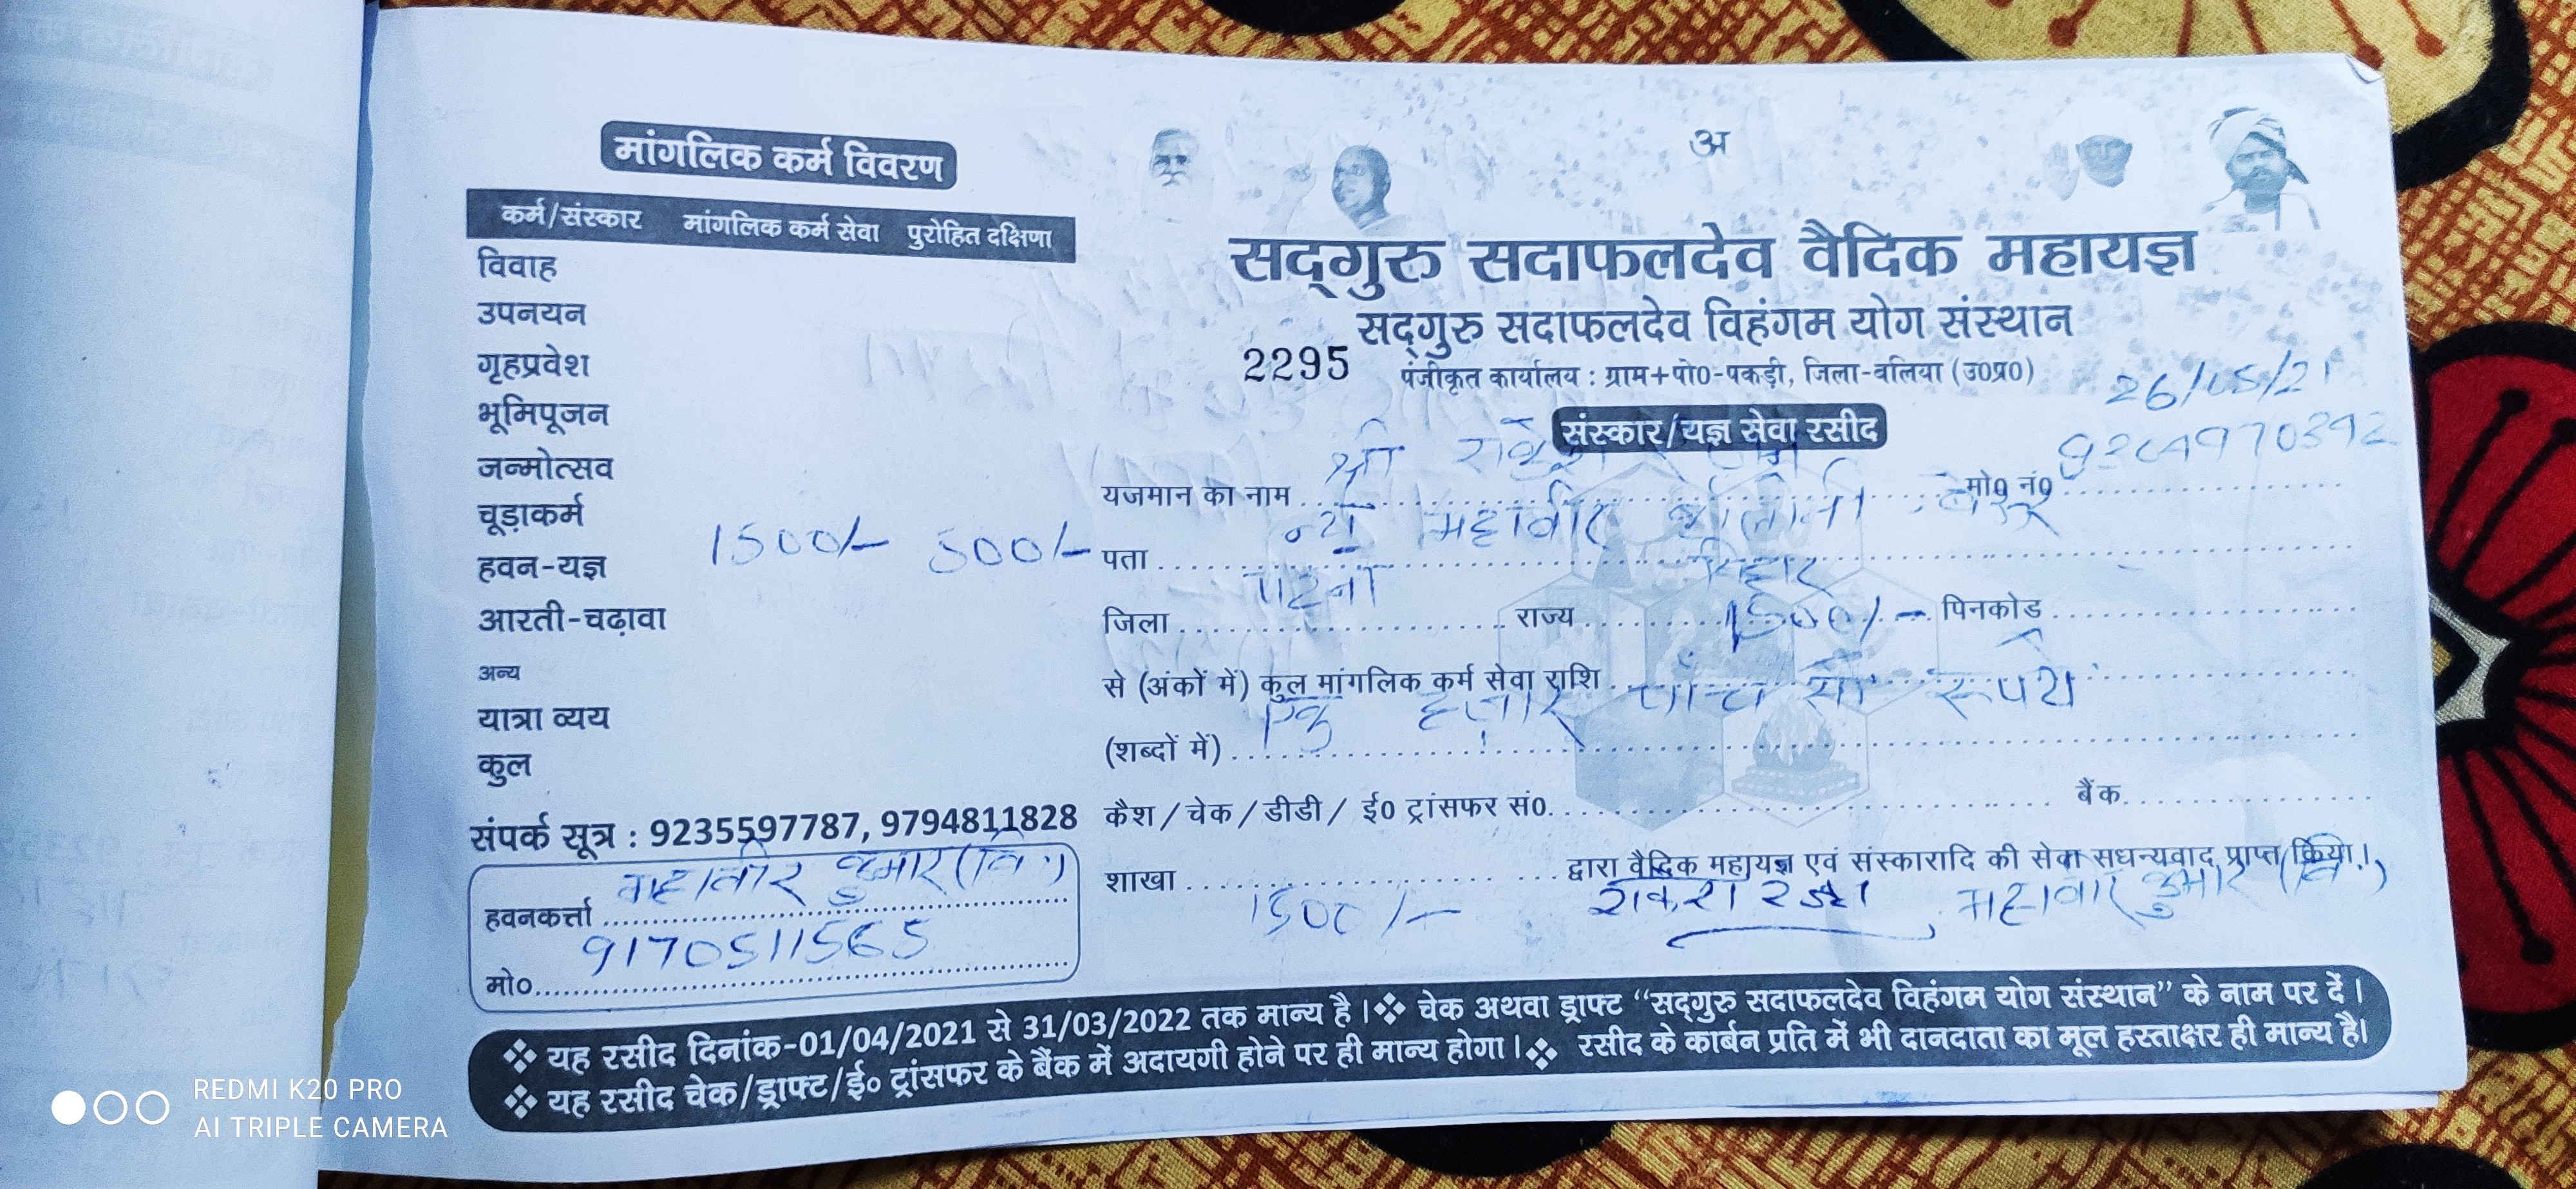 मांगलिक कर्म विवरण
कर्म/संस्कार मांगलिक कर्म सेवा पुरोहित दक्षिणा
विवाह
उपनयन
गृहप्रवेश
भूमिपूजन
जन्मोत्सव
चूड़ाकर्म
हवन-यज्ञ 1500/- 500/-
आरती-चढ़ावा
अन्य
यात्रा व्यय
कुल
संपर्क सूत्र : 9235597787, 9794811828
हवनकर्त्ता महावीर कुमार (वि.)
मो० 9170511565
अ
सद्गुरु सदाफलदेव वैदिक महायज्ञ
सद्गुरु सदाफलदेव विहंगम योग संस्थान
2295 पंजीकृत कार्यालय : ग्राम+पो०-पकड़ी, जिला-बलिया (उ०प्र०)
26/05/21
संस्कार/यज्ञ सेवा रसीद
यजमान का नाम श्री राकेश मो० नं०
पता न्यु महावीर कॉलोनी
जिला पटना राज्य बिहार पिनकोड
से (अंकों में) कुल मांगलिक कर्म सेवा राशि 1500/-
(शब्दों में) एक हजार पाँच सौ रूपये
कैश / चेक / डीडी / ई० ट्रांसफर सं० बैंक
शाखा द्वारा वैदिक महायज्ञ एवं संस्कारादि की सेवा सधन्यवाद प्राप्त किया।
1500/- महावीर कुमार (वि.)
❖ यह रसीद दिनांक-01/04/2021 से 31/03/2022 तक मान्य है। ❖ चेक अथवा ड्राफ्ट “सद्गुरु सदाफलदेव विहंगम योग संस्थान” के नाम पर दें।
❖ यह रसीद चेक/ड्राफ्ट/ई० ट्रांसफर के बैंक में अदायगी होने पर ही मान्य होगा। ❖ रसीद के कार्बन प्रति में भी दानदाता का मूल हस्ताक्षर ही मान्य है।
REDMI K20 PRO
AI TRIPLE CAMERA